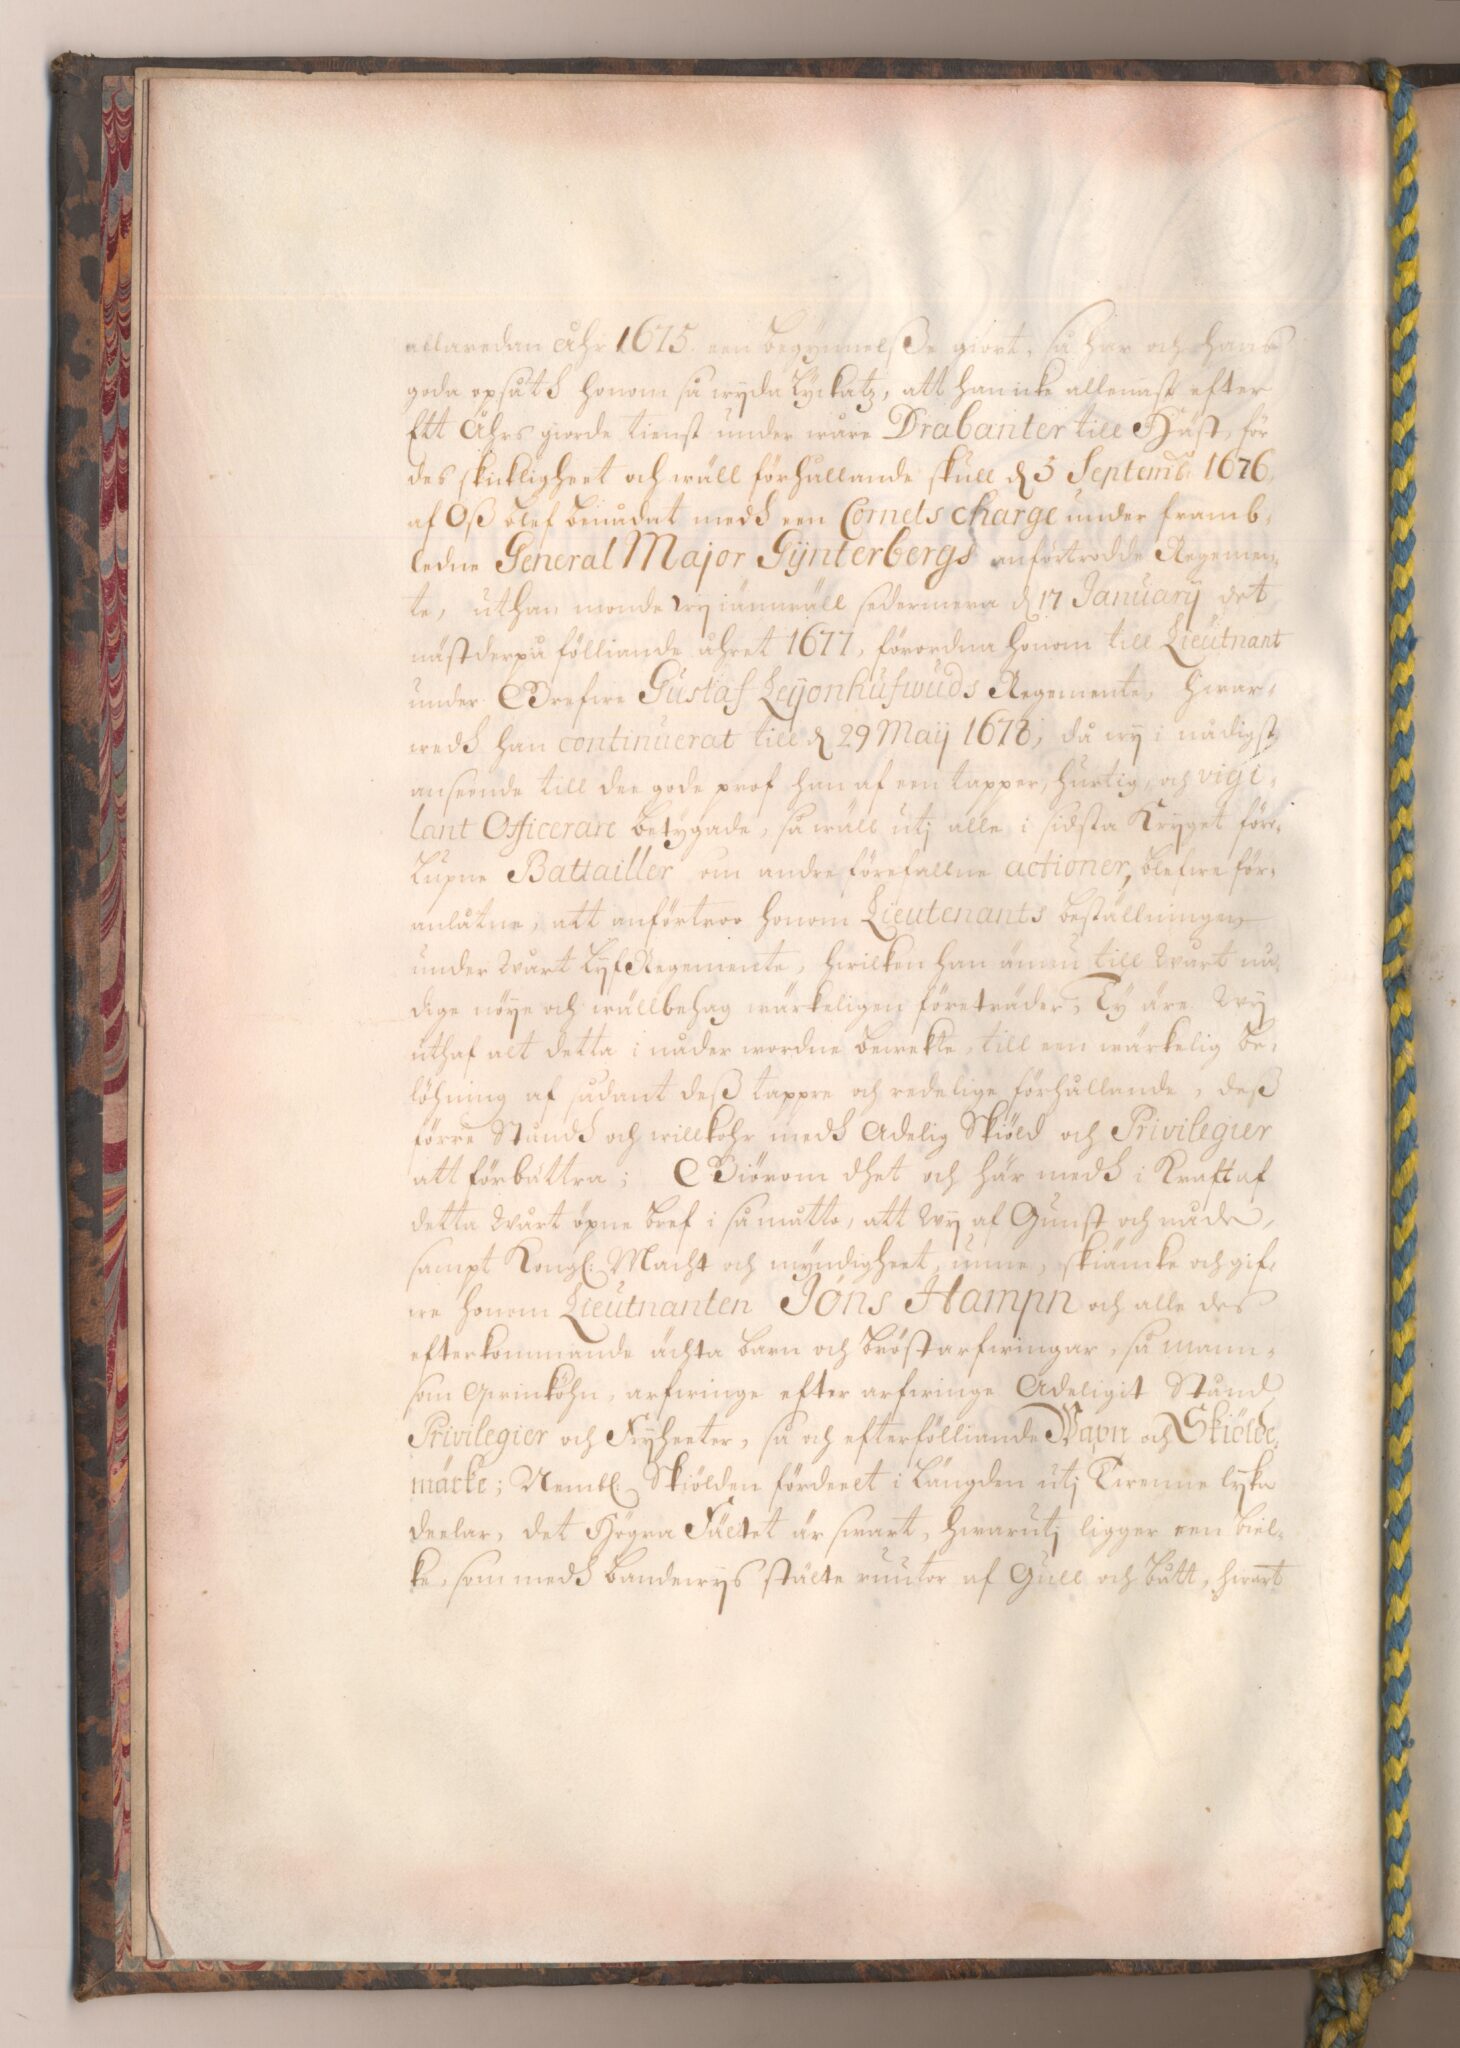 allaredan Åhr 1675. een begynnelße giort, så har och hans
goda opsåth honom så wyda lyckatz, att han icke allenast efter
Ett Åhrs giorde tienst under wåre Drabanter till Häst, för
des skickligheet och wäll förhållande skull d 3 Septemb: 1676,
af Oß blef benådat medh een Cornets charge under framb-
ledne General Major Gÿnterbergs anförtrodde Regemen-
te, uthan monde wy iämwäll sedermera d 17 Januarÿ det
näst derpå fölliande åhret 1677, förordna honom till Lieutnant
under Grefwe Gustaf Leÿonhufwuds Regemente, hwar-
medh han continuerat till d 29 Maÿ 1678, då wy i nådigst
anseende till dee gode prof han af een tapper, hurtig, och vigi-
lant Officerare betygade, så wäll utj alle i sidsta Kryget för-
lupne Battailler om andre förefallne actioner, blefwe för-
anlåtne, att anförtroo honom Lieutenants beställningen
under Wårt LyfRegemente, hwilken han ännu till Wårt nå-
dige nöye och wällbehag wärkeligen företräder, Ty äre Wy
uthaf alt detta i nåder wordne bewekte, till een wärkelig be-
löhning af sådant deß tappre och redelige förhållande, deß
förre Stundh och willkohr medh Adelig Skiöld och Privilegier
att förbättra; Giörom dhet och här medh i Kraft af
detta Wårt öpne bref i så måtto, att Wy af Gunst och nåde,
sampt Kongl: Macht och myndigheet, unne, skiäncke och gif,
we honom Lieutnanten Jöns Hampn och alle des
efterkommande ächta barn och bröstarfwingar, så mann-
som qwinköhn, arfwinge efter arfwinge Adeligit Stånd
Privilegier och Fryheeter, så och efterfölliande Wapn och Skiölde-
märke; Nembl: Skiölden fördeelt i Längden utj Twenne lyka
deelar, det Högra Fältet är swart, hwarutj ligger een biel-
ke, som medh bandewys stälte ruutor af Gull och blått, hwart